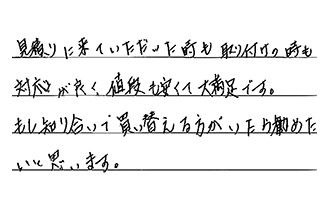 見積りに来ていただいた時も取り付けの時も
対応が良く、値段も安くて大満足です。
もし知り合いで買い替える方がいたら勧めた
いと思います。